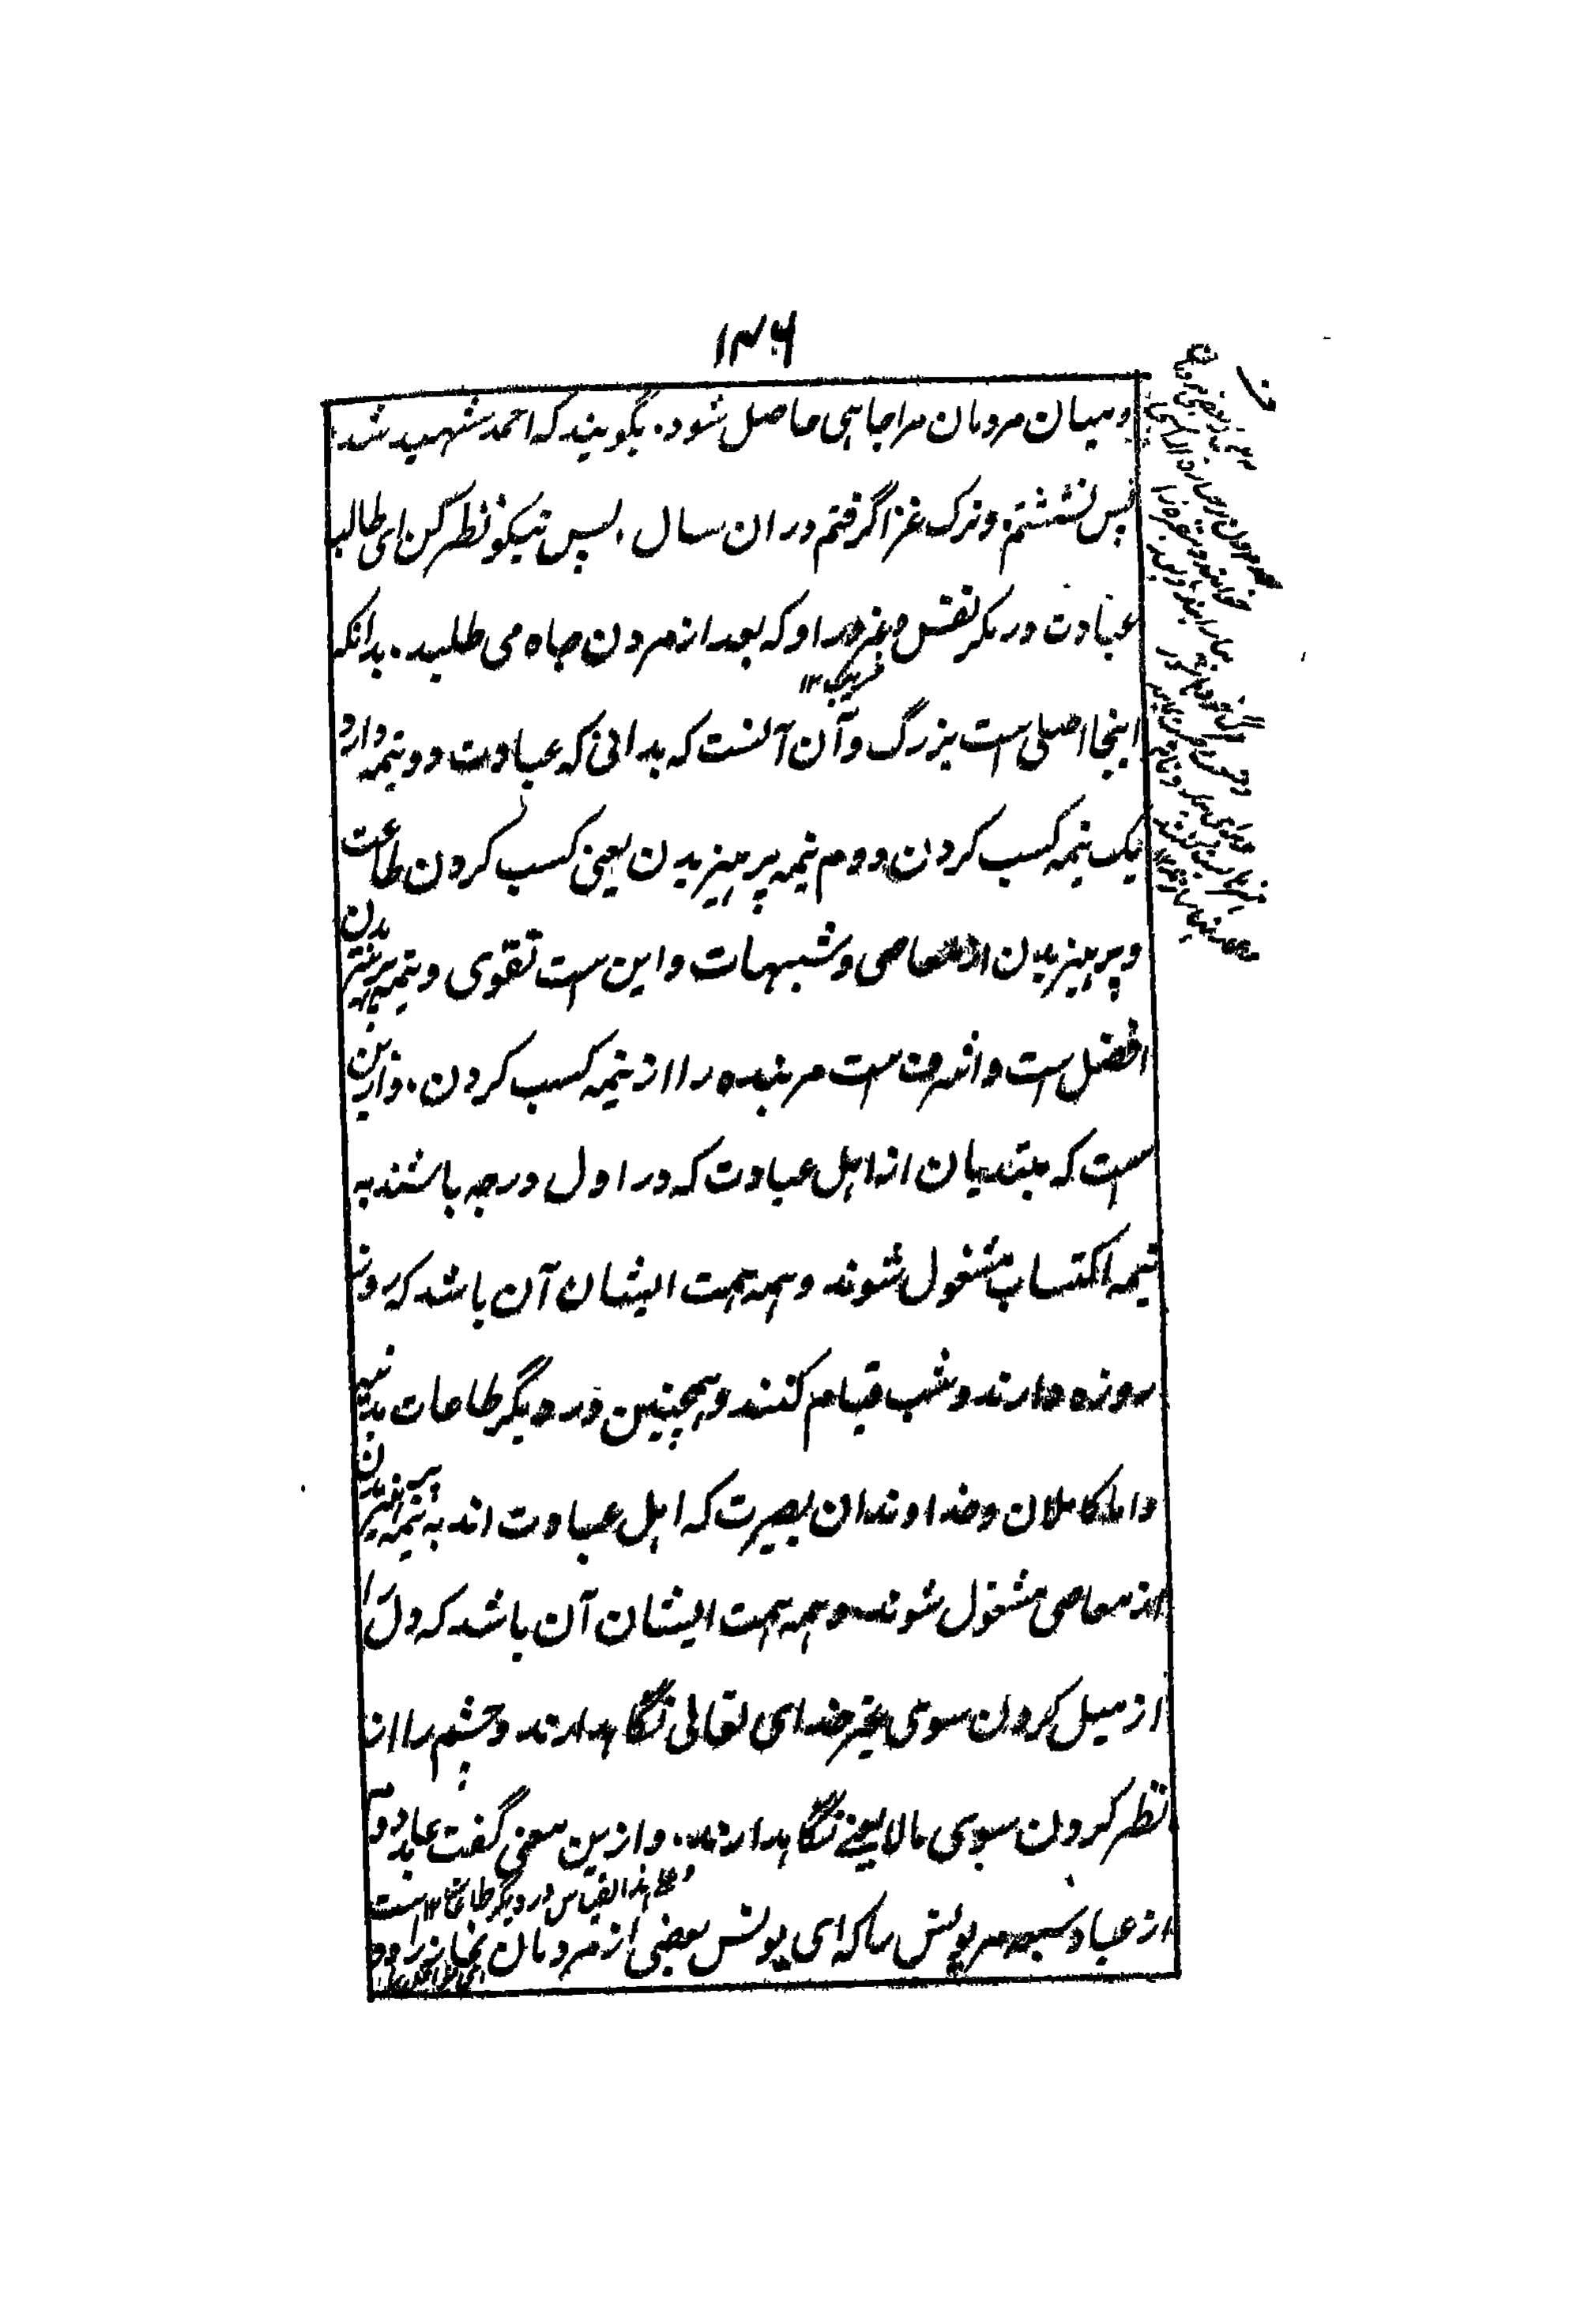 ۱۴۶
و میان مردمان مرا جاهی حاصل شود. بگویند که احمد شهید شد
پس نشستم و ترک غزا گرفتم در ان سال. پس نیکو نظر کن ای طالب
عبادت در مکر نفس و غرور او که بعد از مردن جاه می طلبد. بدانکه
فریب ۱۲
اینجا اصلی ست بزرگ و آن آنست که بدانی که عبادت دو نیمه دارد
یک نیمه کسب کردن و دوم نیمه پرهیزیدن یعنی کسب کردن طاعت
و پرهیزیدن از معاصی و شبهات و این ست تقوی و نیمه پرهیزیدن
افضل ست و اشرف ست مر بنده را از نیمه کسب کردن. و ازین
ست که مبتدیان از اهل عبادت که در اول درجه باشند به
نیمه اکتساب مشغول شوند و همه همت ایشان آن باشد که روز
روزه دارند و شب قیام کنند و همچنین در دیگر طاعات بدنیه
و اما کاملان و خداوندان بصیرت که اهل عبادت اند به نیمه پرهیزیدن
از معاصی مشغول شوند و همه همت ایشان آن باشد که دل را
از میل کردن سوی غیر خدای تعالی نگاهدارند و چشم را از
نظر کردن سوی مالایعنی نگاهدارند. و ازین معنی گفت عابد دوم
و علی هذا القیاس در دیگر طاعات ۱۲
از عباد سبعه مر یونس را که ای یونس بعضی از مردمان نماز را دوست